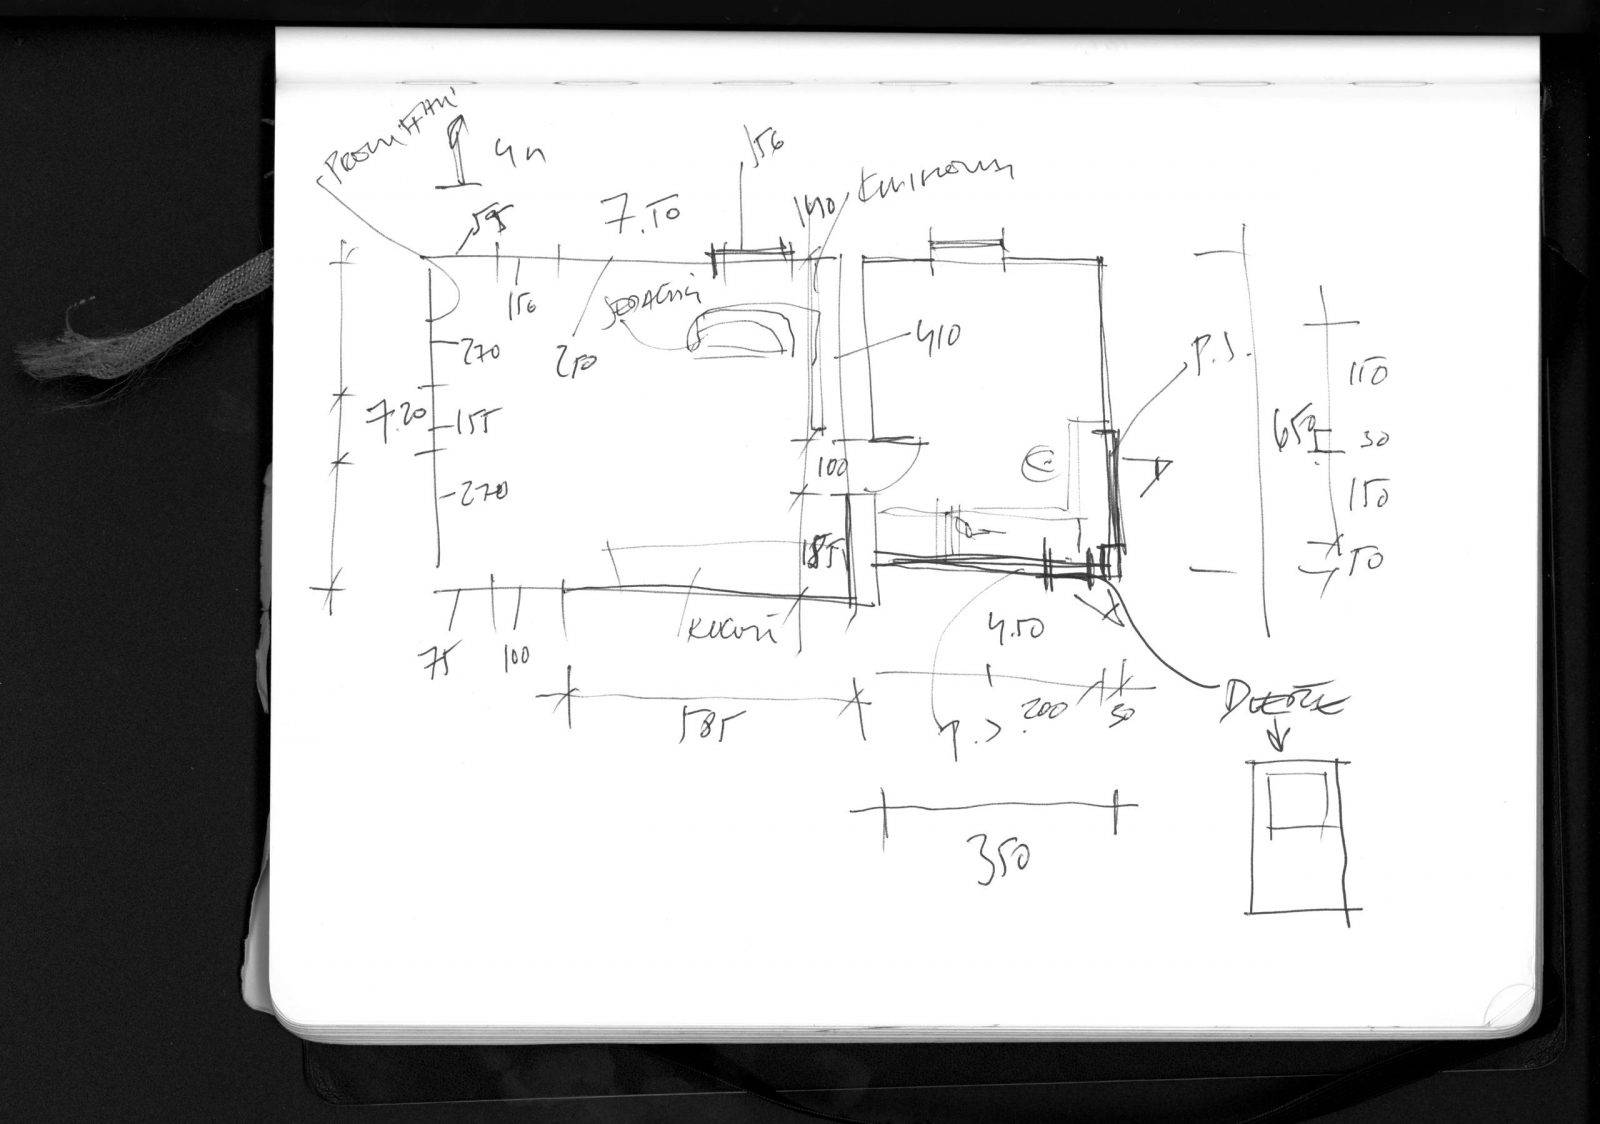 PROMÍTÁNÍ
4n
156
595
7.50
140
KNIHOVNA
156
SEDAČKA
410
270
250
P.S.
150
7.20
155
650
30
100
270
150
185
50
KUCHYŇ
4.50
75
100
DVEŘE
585
P.S.
200
50
350